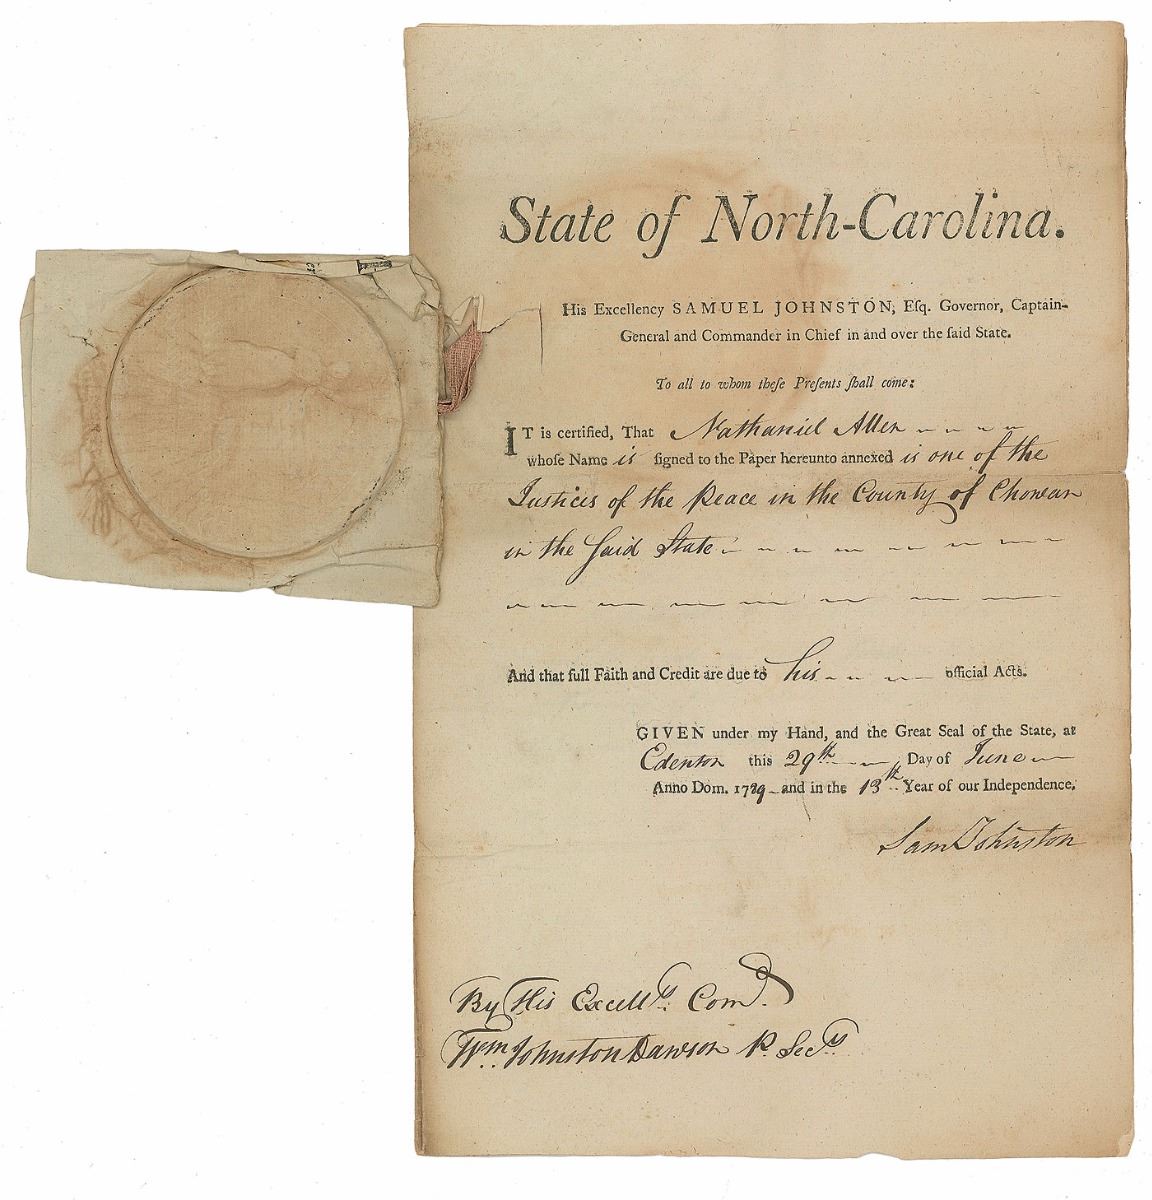 State of North-Carolina.
His Excellency SAMUEL JOHNSTON, Eſq. Governor, Captain-
General and Commander in Chief in and over the ſaid State.
To all to whom theſe Preſents ſhall come:
IT is certified, That Nathaniel Allen
whoſe Name is ſigned to the Paper hereunto annexed is one of the
Justices of the Peace in the County of Chowan
in the Said State
And that full Faith and Credit are due to his official Acts.
GIVEN under my Hand, and the Great Seal of the State, at
Edenton this 29th Day of June
Anno Dom. 1789 and in the 13th Year of our Independence.
Sam Johnston
By His Excelly's Comd.
Wm Johnston Dawson P. Secy